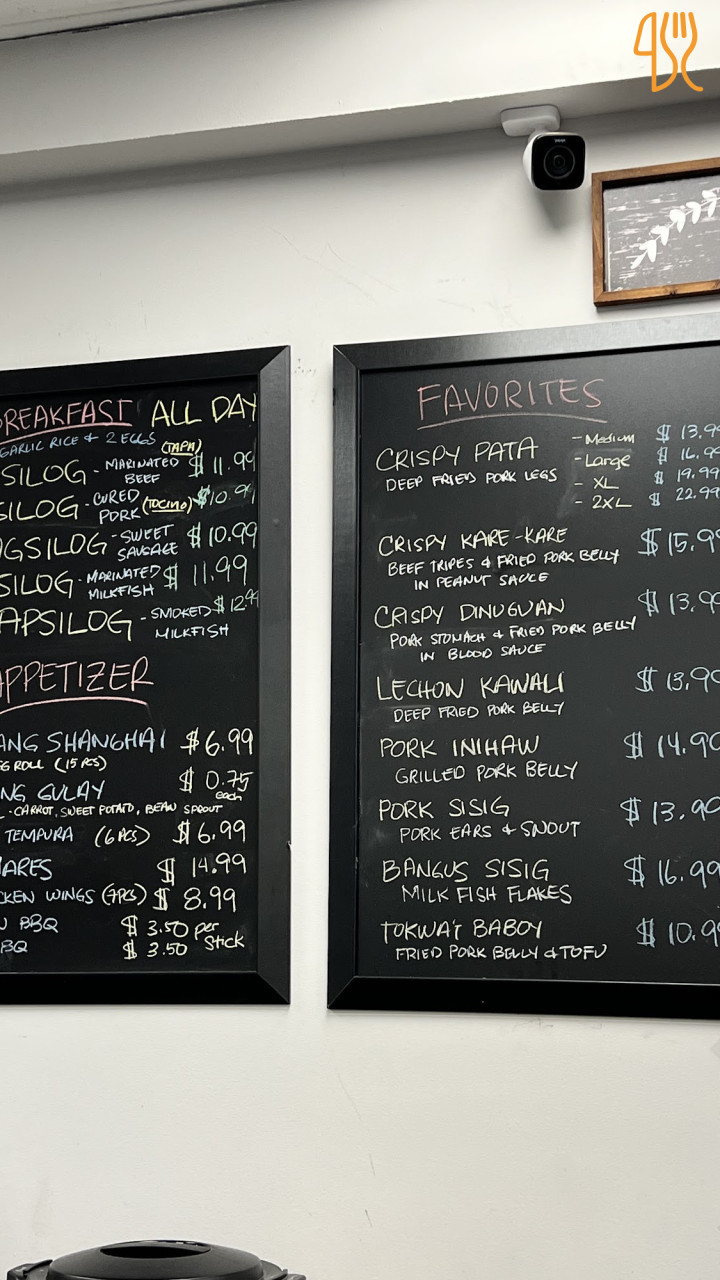 BREAKFAST ALL DAY
GARLIC RICE & 2 EGGS
(TAPA)
SILOG - MARINATED BEEF $ 11.99
SILOG - CURED PORK (TOCINO) $10.9
GSILOG - SWEET SAUSAGE $10.99
SILOG - MARINATED MILKFISH $ 11.99
APSILOG - SMOKED MILKFISH $ 12.99
APPETIZER
ANG SHANGHAI $6.99
G ROLL (15 PCS)
NG GULAY $ 0.75 each
- CARROT, SWEET POTATO, BEAN SPROUT
TEMPURA (6 PCS) $ 6.99
ARES $ 14.99
CKEN WINGS (7PCS) $ 8.99
BBQ $ 3.50 per
BBQ $ 3.50 Stick
FAVORITES
CRISPY PATA - Medium $ 13.99
DEEP FRIED PORK LEGS - Large $ 16.99
- XL $ 19.99
- 2XL $ 22.99
CRISPY KARE-KARE $ 15.9
BEEF TRIPES & FRIED PORK BELLY
IN PEANUT SAUCE
CRISPY DINUGUAN $ 13.9
PORK STOMACH & FRIED PORK BELLY
IN BLOOD SAUCE
LECHON KAWALI $ 13.9
DEEP FRIED PORK BELLY
PORK INIHAW $ 14.9
GRILLED PORK BELLY
PORK SISIG $ 13.9
PORK EARS & SNOUT
BANGUS SISIG $ 16.99
MILK FISH FLAKES
TOKWA'T BABOY $ 10.9
FRIED PORK BELLY & TOFU